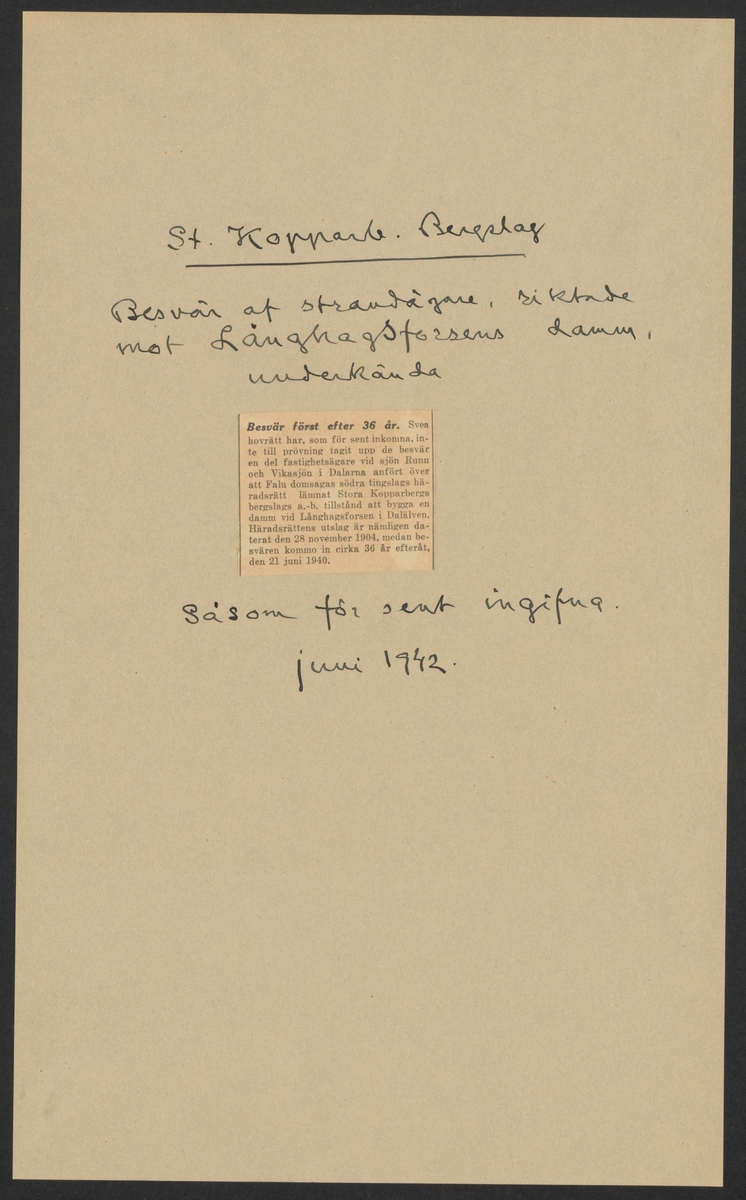 St. Kopparb. Bergslag
Besvär af strandägare, riktade
mot Långhagsforsens damm,
underkända
Besvär först efter 36 år. Svea
hovrätt har, som för sent inkomna, in-
te till prövning tagit upp de besvär
en del fastighetsägare vid sjön Runn
och Vikasjön i Dalarna anfört över
att Falu domsagas södra tingslags hä-
radsrätt lämnat Stora Kopparbergs
bergslags a.-b. tillstånd att bygga en
damm vid Långhagsforsen i Dalälven.
Häradsrättens utslag är nämligen da-
terat den 28 november 1904, medan be-
svären kommo in cirka 36 år efteråt,
den 21 juni 1940.
Såsom för sent ingifna.
juni 1942.